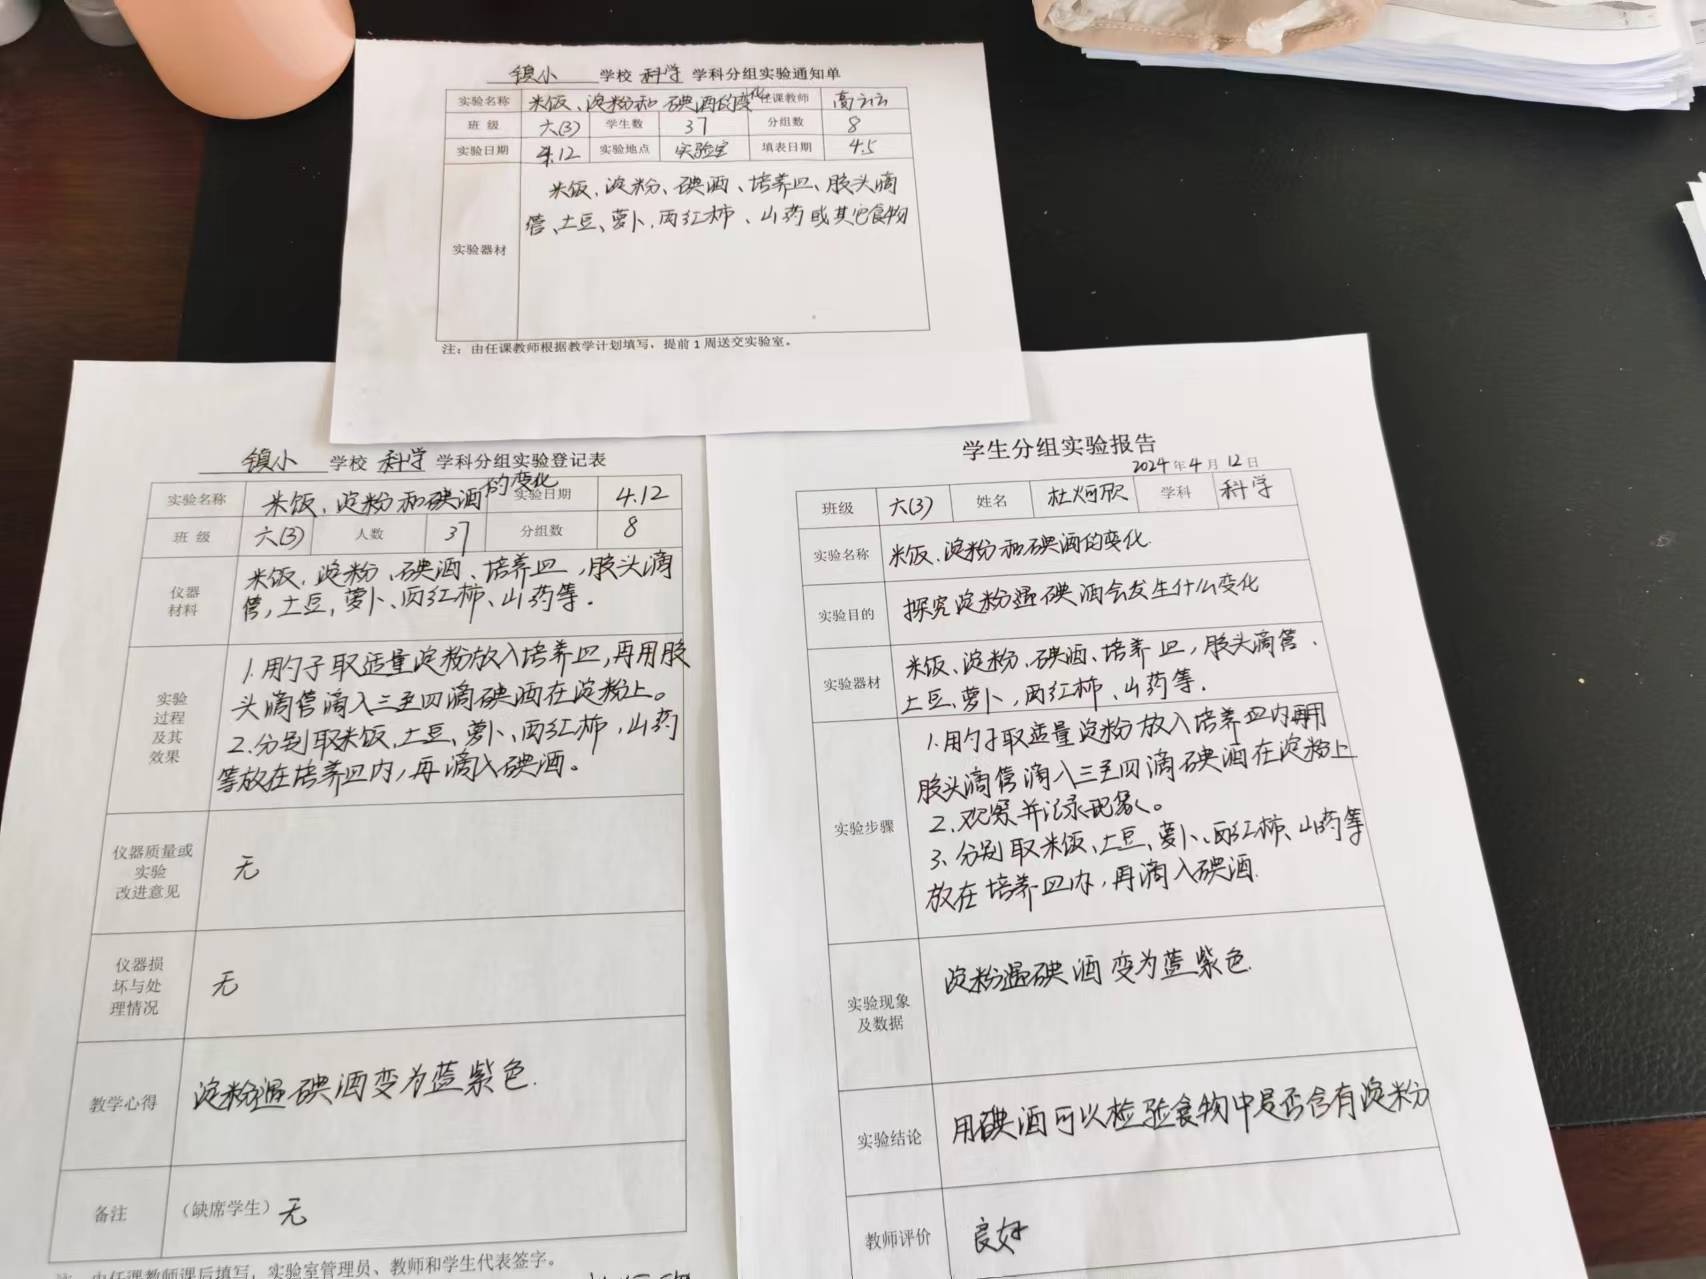 镇小 学校 科学 学科分组实验通知单
实验名称 米饭、淀粉和碘酒的变化 任课教师 高云云
班 级 六(3) 学生数 37 分组数 8
实验日期 4.12 实验地点 实验室 填表日期 4.5
实验器材
米饭、淀粉、碘酒、培养皿、胶头滴
管、土豆、萝卜、西红柿、山药或其它食物
注：由任课教师根据教学计划填写，提前 1 周送交实验室。
镇小 学校 科学 学科分组实验登记表
实验名称 米饭、淀粉和碘酒的变化 实验日期 4.12
班 级 六(3) 人数 37 分组数 8
仪器
材料
米饭、淀粉、碘酒、培养皿,胶头滴
管,土豆,萝卜、西红柿、山药等.
实验
过程
及其
效果
1.用勺子取适量淀粉放入培养皿,再用胶
头滴管滴入三至四滴碘酒在淀粉上。
2.分别取米饭、土豆、萝卜、西红柿,山药
等放在培养皿内,再滴入碘酒。
仪器质量或
实验
改进意见
无
仪器损
坏与处
理情况
无
教学心得 淀粉遇碘酒变为蓝紫色.
备注 （缺席学生）无
注：由任课教师课后填写，实验室管理员、教师和学生代表签字。
学生分组实验报告
2024 年 4 月 12 日
班级 六(3) 姓名 杜炯欣 学科 科学
实验名称 米饭、淀粉和碘酒的变化
实验目的 探究淀粉遇碘酒会发生什么变化
实验器材
米饭、淀粉、碘酒、培养皿,胶头滴管、
土豆、萝卜,西红柿、山药等.
实验步骤
1.用勺子取适量淀粉放入培养皿内再用
胶头滴管滴入三至四滴碘酒在淀粉上
2.观察并记录现象。
3、分别取米饭、土豆、萝卜、西红柿、山药等
放在培养皿内,再滴入碘酒.
实验现象
及数据
淀粉遇碘酒变为蓝紫色
实验结论 用碘酒可以检验食物中是否含有淀粉
教师评价 良好